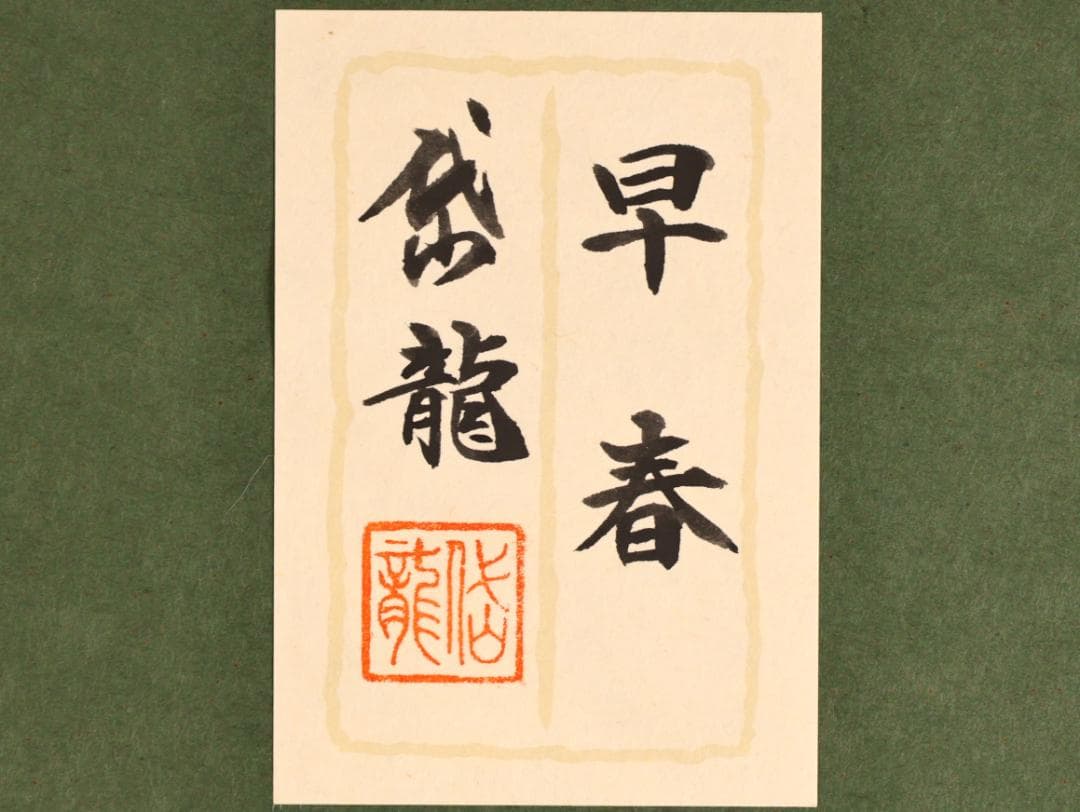 早春
岱龍
岱龍